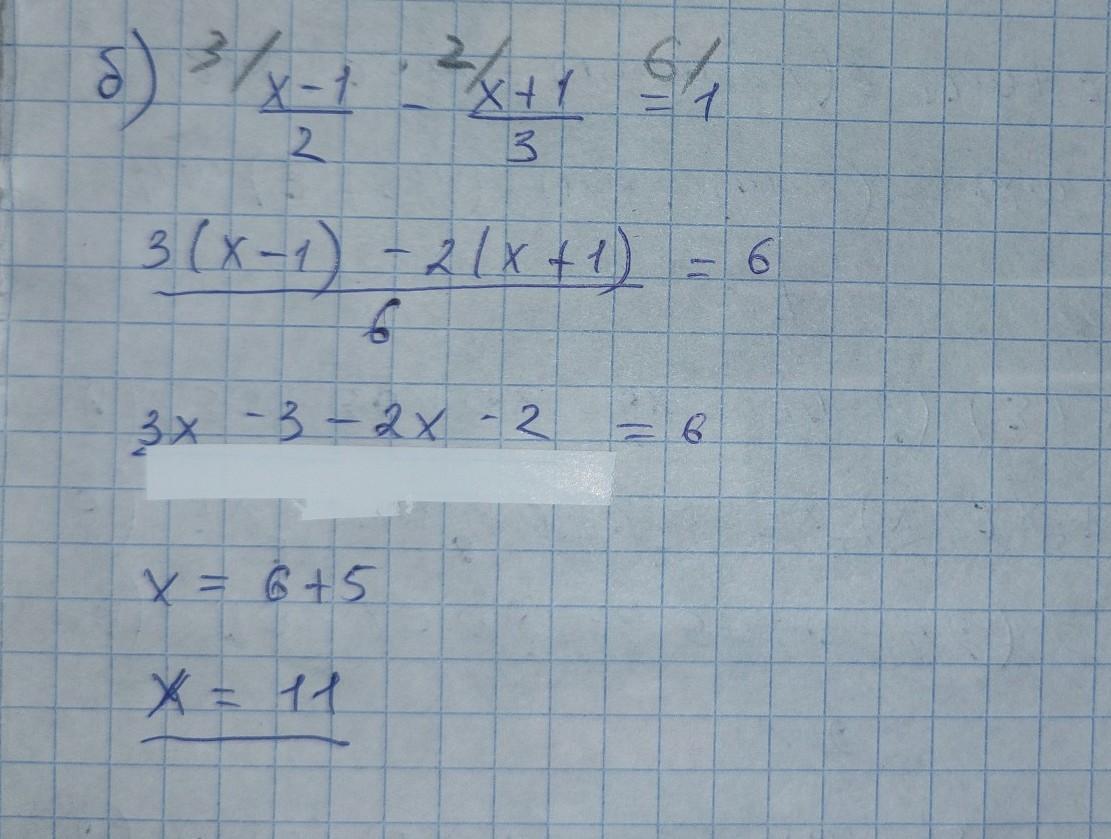 б) 3/ x-1/2 - 2/ x+1/3 = 6/ 1
3(x-1) - 2(x+1)/6 = 6
3x - 3 - 2x - 2 = 6
x = 6+5
x = 11